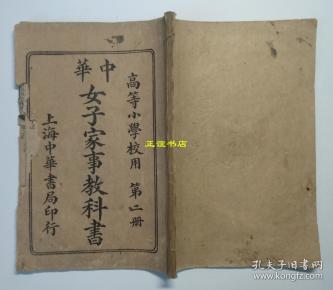 中華
高等小學校用 第二册
女子家事教科書
上海中華書局印行
正谊书店
孔夫子旧书网